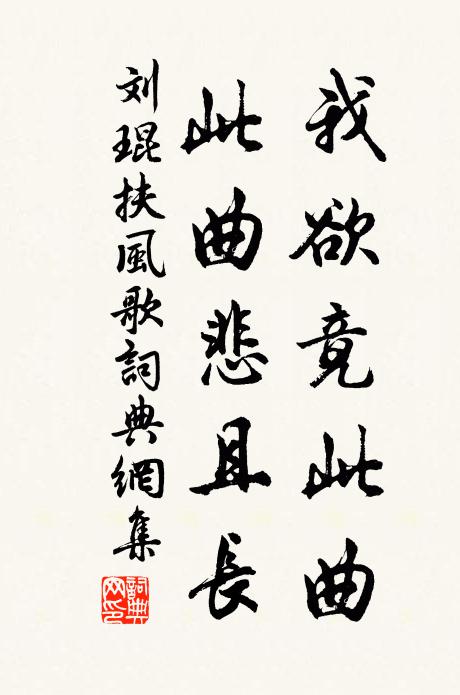 我欲竟此曲
此曲悲且長
刘琨扶風歌詞典網集
詞典網印